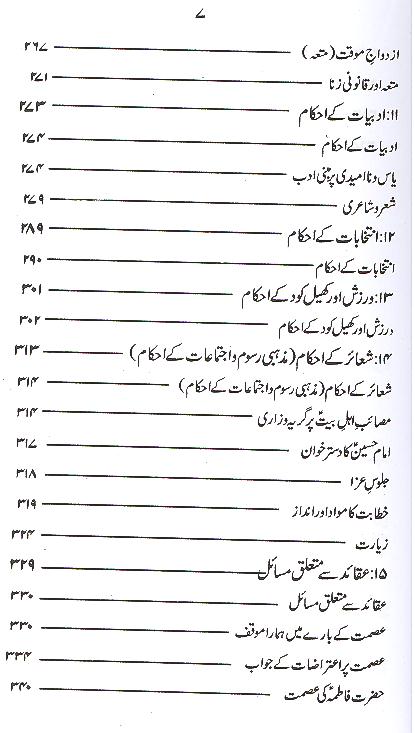 ۷
ازدواج موقت (متعہ) ۲۶۷
متعہ اور قانونی زنا ۲۷۱
۱۱: ادبیات کے احکام ۲۷۳
ادبیات کے احکام ۲۷۴
یاس و ناامیدی پر مبنی ادب ۲۷۴
شعر و شاعری ۲۷۹
۱۲: انتخابات کے احکام ۲۸۹
انتخابات کے احکام ۲۹۰
۱۳: ورزش اور کھیل کود کے احکام ۳۰۱
ورزش اور کھیل کود کے احکام ۳۰۲
۱۴: شعائر کے احکام (مذہبی رسوم و اجتماعات کے احکام) ۳۱۳
شعائر کے احکام (مذہبی رسوم و اجتماعات کے احکام) ۳۱۴
مصائب اہل بیتؑ پر گریہ و زاری ۳۱۴
امام حسینؑ کا دسترخوان ۳۱۷
جلوس عزا ۳۱۸
خطابت کا مواد اور انداز ۳۱۹
زیارت ۳۲۴
۱۵: عقائد سے متعلق مسائل ۳۲۹
عقائد سے متعلق مسائل ۳۳۰
عصمت کے بارے میں ہمارا موقف ۳۳۰
عصمت پر اعتراضات کے جواب ۳۳۴
حضرت فاطمہؑ کی عصمت ۳۴۰